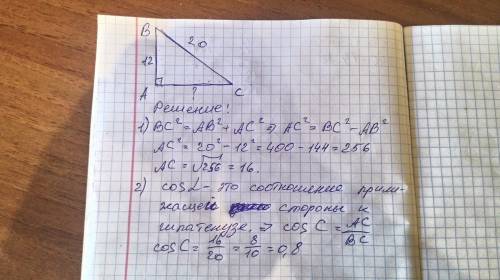 B
20
12
A
?
C
Решение!
1) BC² = AB² + AC² ⇒ AC² = BC² - AB²
AC² = 20² - 12² = 400 - 144 = 256
AC = √256 = 16.
2) cos L - это соотношение приле-
жасщей стороны к
гипатенузе, ⇒ cos C = AC/BC
cos C = 16/20 = 8/10 = 0,8